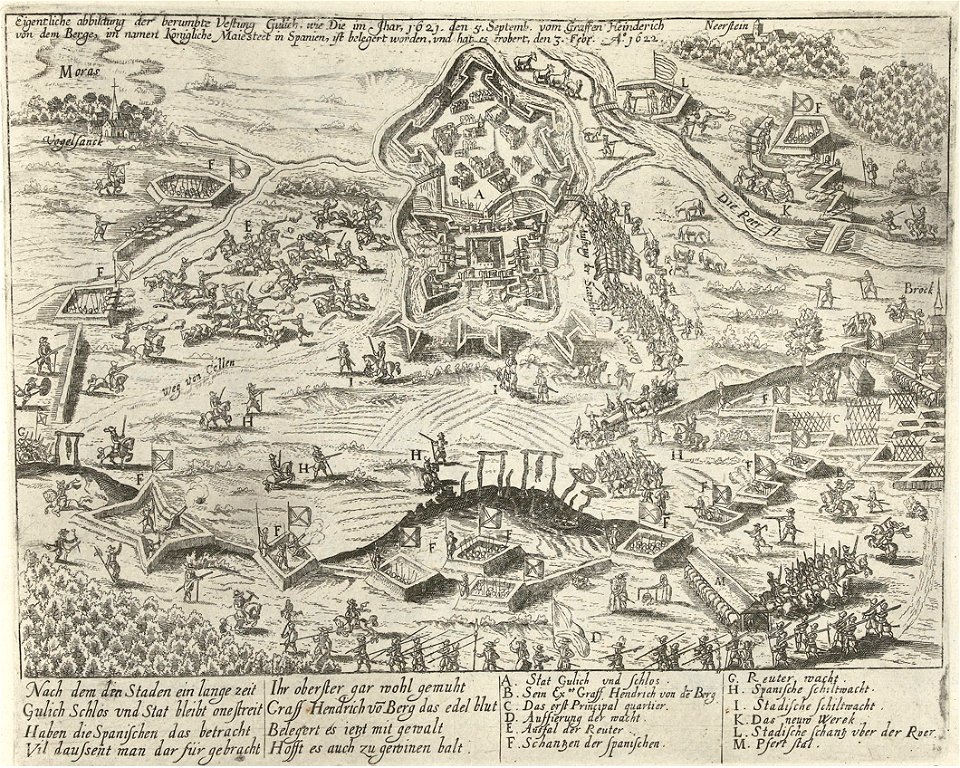 Eigentliche abbildung der berumbte Vestung Gulich, wie Die im Jhar, 1621. den 5. Septemb. vom Graffen Heinderich
von dem Berge, im namen Konigliche Maiesteet in Spanien, ist belegert worden, vnd hat es erobert, den 3. Febr. Aº 1622
Neerstein
Moras
Vogelsanck
L
F
F
A
K
Die Roer fl.
E
F
Brock
Weg von Cellen
I
I
F
C
G
H
H
H
H
F
F
F
F
F
F
M
D
Nach dem den Staden ein lange zeit
Gulich Schlos vnd Stat bleibt one streit
Haben die Spanischen das betracht
Vil daussent man dar für gebracht
Ihr oberster gar wohl gemuht
Graff Hendrich vō Berg das edel blut
Belegert es ietzt mit gewalt
Hofft es auch zu gewinen balt.
A. Stat Gulich vnd schlos
B. Sein Ex.tie Graff Hendrich von de Berg
C. Das erst Principal quartier.
D. Auffierung der wacht.
E. Ausfal der Reuter.
F. Schantzen der spanischen.
G. Reuter, wacht.
H. Spanische schiltwacht.
I. Stadische schiltwacht.
K. Das neuw Werck.
L. Stadische schantz vber der Roer.
M. Pfert stal.